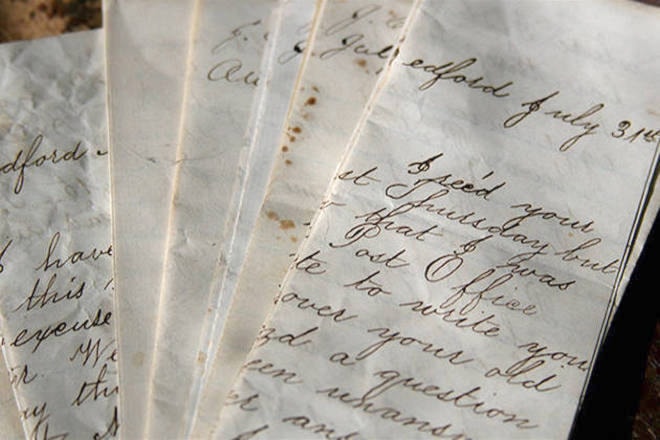 dford
I have
this
excuse
r. We
ay th
J.
Au
J. Jul
edford July 31st
I rec'd your
st Thursday but
that I was
Post Office
te to write you
over your old
d a question
een unans
er an